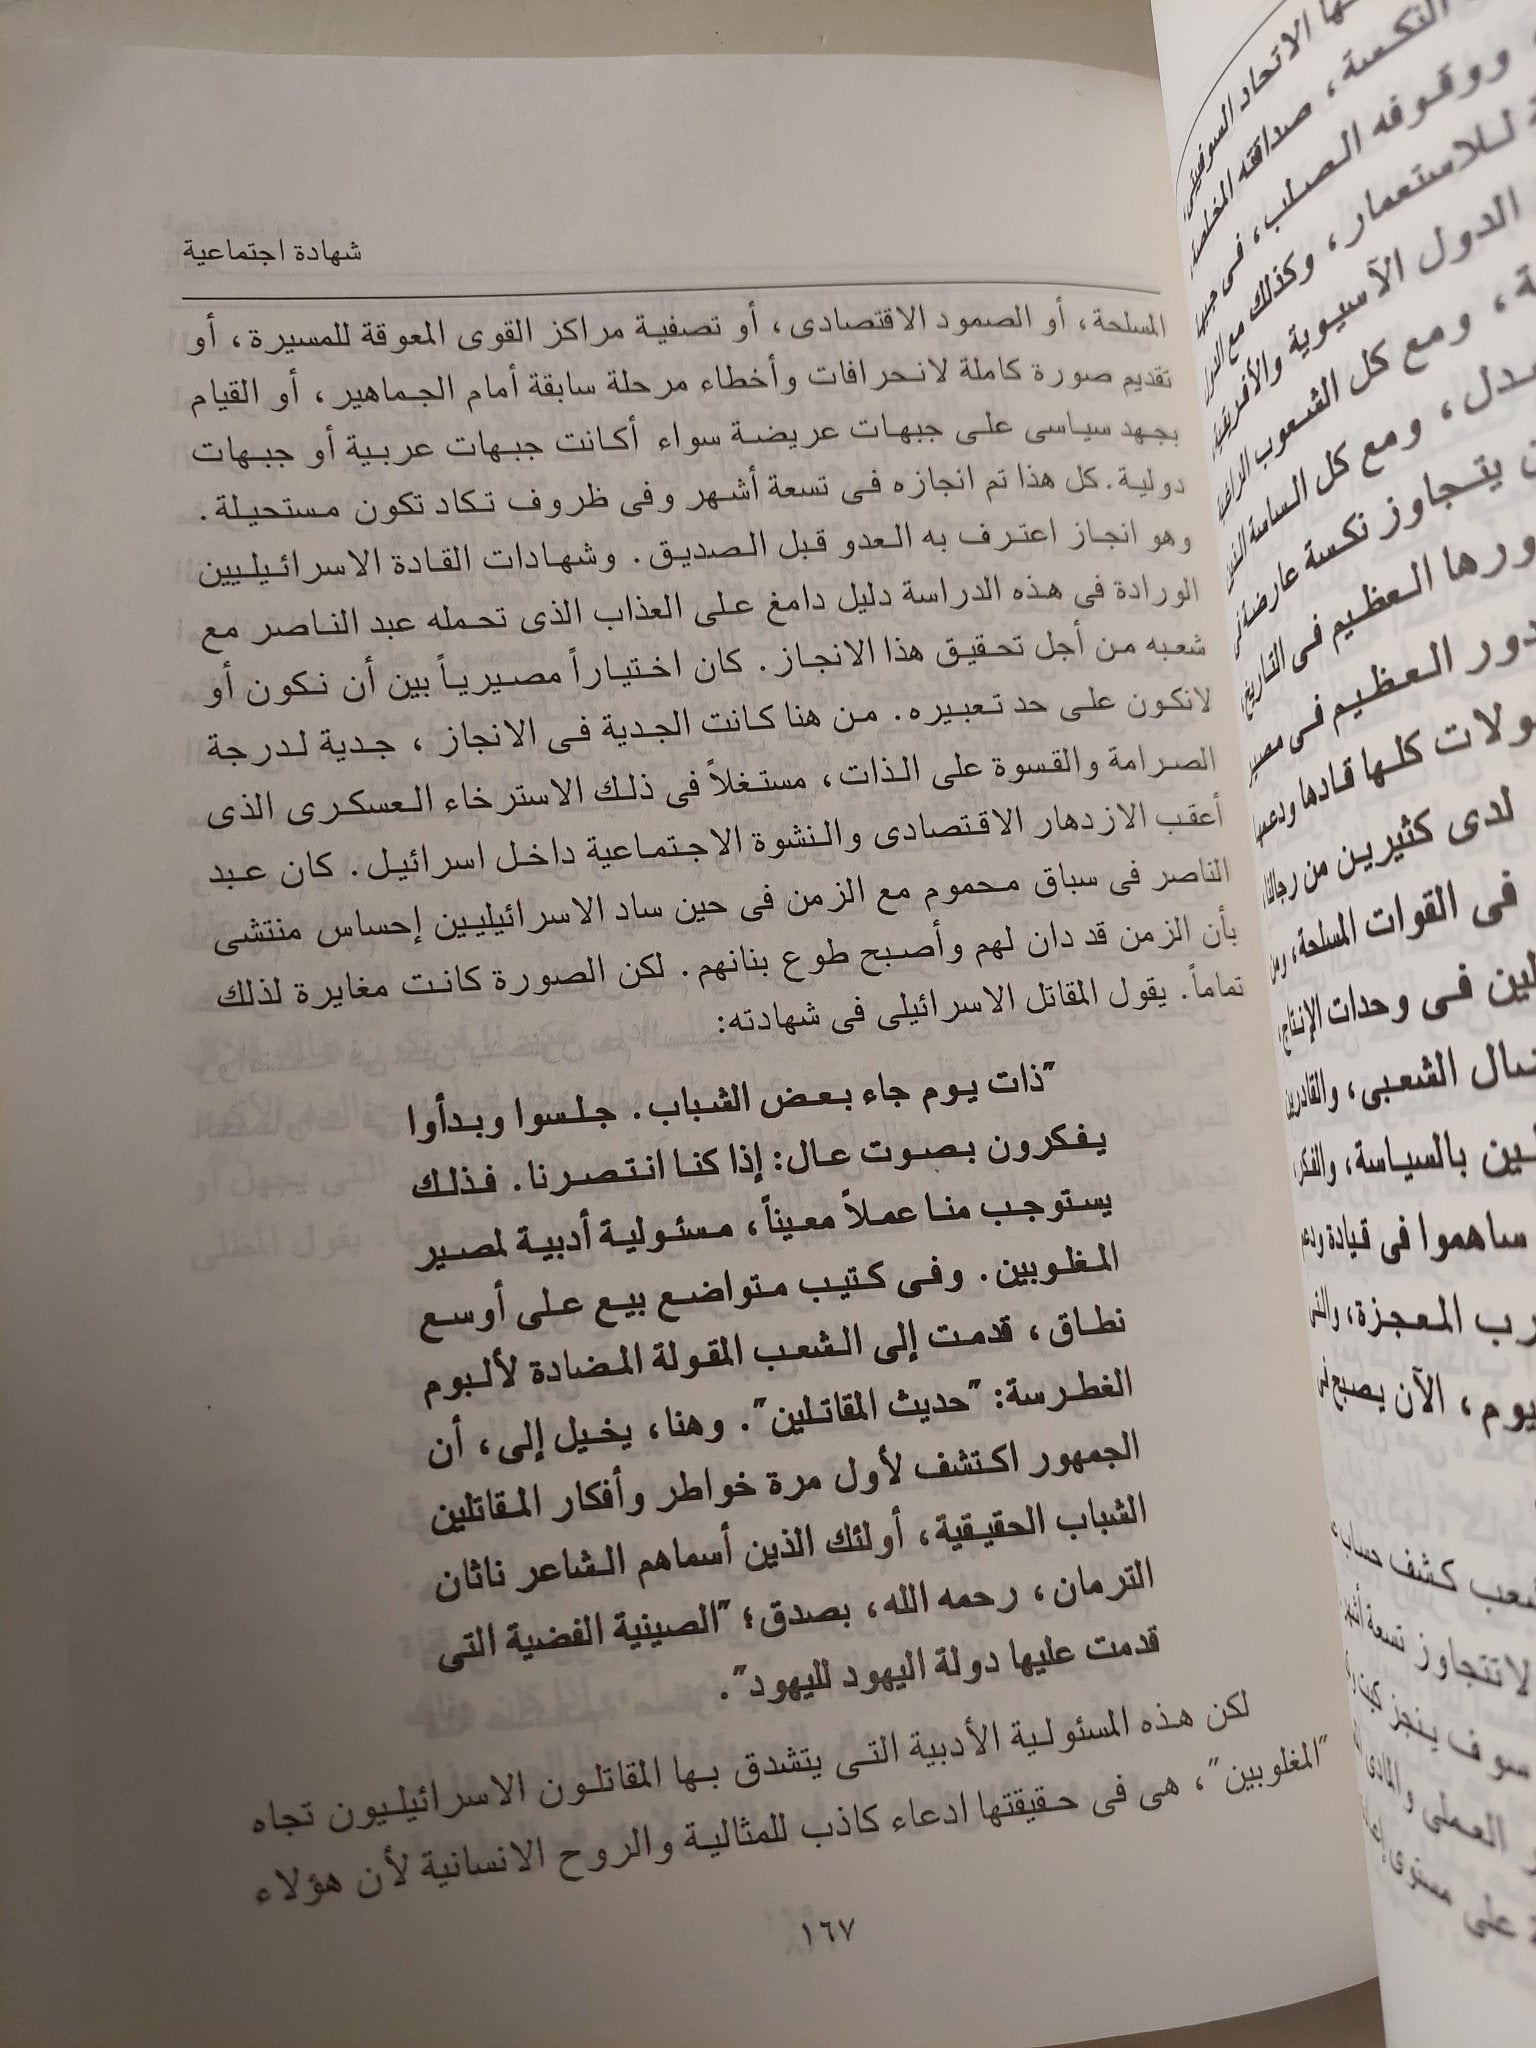 شهادة اجتماعية
المسلحة، أو الصمود الاقتصادى، أو تصفية مراكز القوى المعوقة للمسيرة، أو
تقديم صورة كاملة لانحرافات وأخطاء مرحلة سابقة أمام الجماهير، أو القيام
بجهد سياسى على جبهات عريضة سواء أكانت جبهات عربية أو جبهات
دولية. كل هذا تم انجازه فى تسعة أشهر وفى ظروف تكاد تكون مستحيلة.
وهو انجاز اعترف به العدو قبل الصديق. وشهادات القادة الاسرائيليين
الورادة فى هذه الدراسة دليل دامغ على العذاب الذى تحمله عبد الناصر مع
شعبه من أجل تحقيق هذا الانجاز. كان اختياراً مصيرياً بين أن نكون أو
لانكون على حد تعبيره. من هنا كانت الجدية فى الانجاز، جدية لدرجة
الصرامة والقسوة على الذات، مستغلاً فى ذلك الاسترخاء العسكرى الذى
أعقب الازدهار الاقتصادى والنشوة الاجتماعية داخل اسرائيل. كان عبد
الناصر فى سباق محموم مع الزمن فى حين ساد الاسرائيليين إحساس منتشى
بأن الزمن قد دان لهم وأصبح طوع بنانهم. لكن الصورة كانت مغايرة لذلك
تماماً. يقول المقاتل الاسرائيلى فى شهادته:
"ذات يوم جاء بعض الشباب. جلسوا وبدأوا
يفكرون بصوت عال: إذا كنا انتصرنا. فذلك
يستوجب منا عملاً معيناً، مسئولية أدبية لمصير
المغلوبين. وفى كتيب متواضع بيع على أوسع
نطاق، قدمت إلى الشعب المقولة المضادة لألبوم
الغطرسة: "حديث المقاتلين". وهنا، يخيل إلى، أن
الجمهور اكتشف لأول مرة خواطر وأفكار المقاتلين
الشباب الحقيقية، أولئك الذين أسماهم الشاعر ناثان
الترمان، رحمه الله، بصدق؛ "الصينية الفضية التى
قدمت عليها دولة اليهود لليهود".
لكن هذه المسئولية الأدبية التى يتشدق بها المقاتلون الاسرائيليون تجاه
"المغلوبين"، هى فى حقيقتها ادعاء كاذب للمثالية والروح الانسانية لأن هؤلاء
١٦٧
الاتحاد السوفيتى،
النكسة، صداقته المخلصة
ووقوفه الصلب، فى جبهة
للاستعمار، وكذلك مع الدول
الدول الآسيوية والأفريقية،
ومع كل الشعوب الراغبة
ومع كل الساسة الذين
يتجاوز نكسة عارضة فى
دورها العظيم فى التاريخ،
دور العظيم فى مصير
كلها قادها ودعمها
لدى كثيرين من رجالنا،
فى القوات المسلحة، ومن
فى وحدات الإنتاج،
الشعبى، والقادرين
بالسياسة، والفكر
ساهموا فى قيادة ودعم
المعجزة، والتى
يوم، الآن يصبح فى
كشف حساب
لاتتجاوز تسعة أشهر
سوف ينجز
العملى والمادى
على مستوى